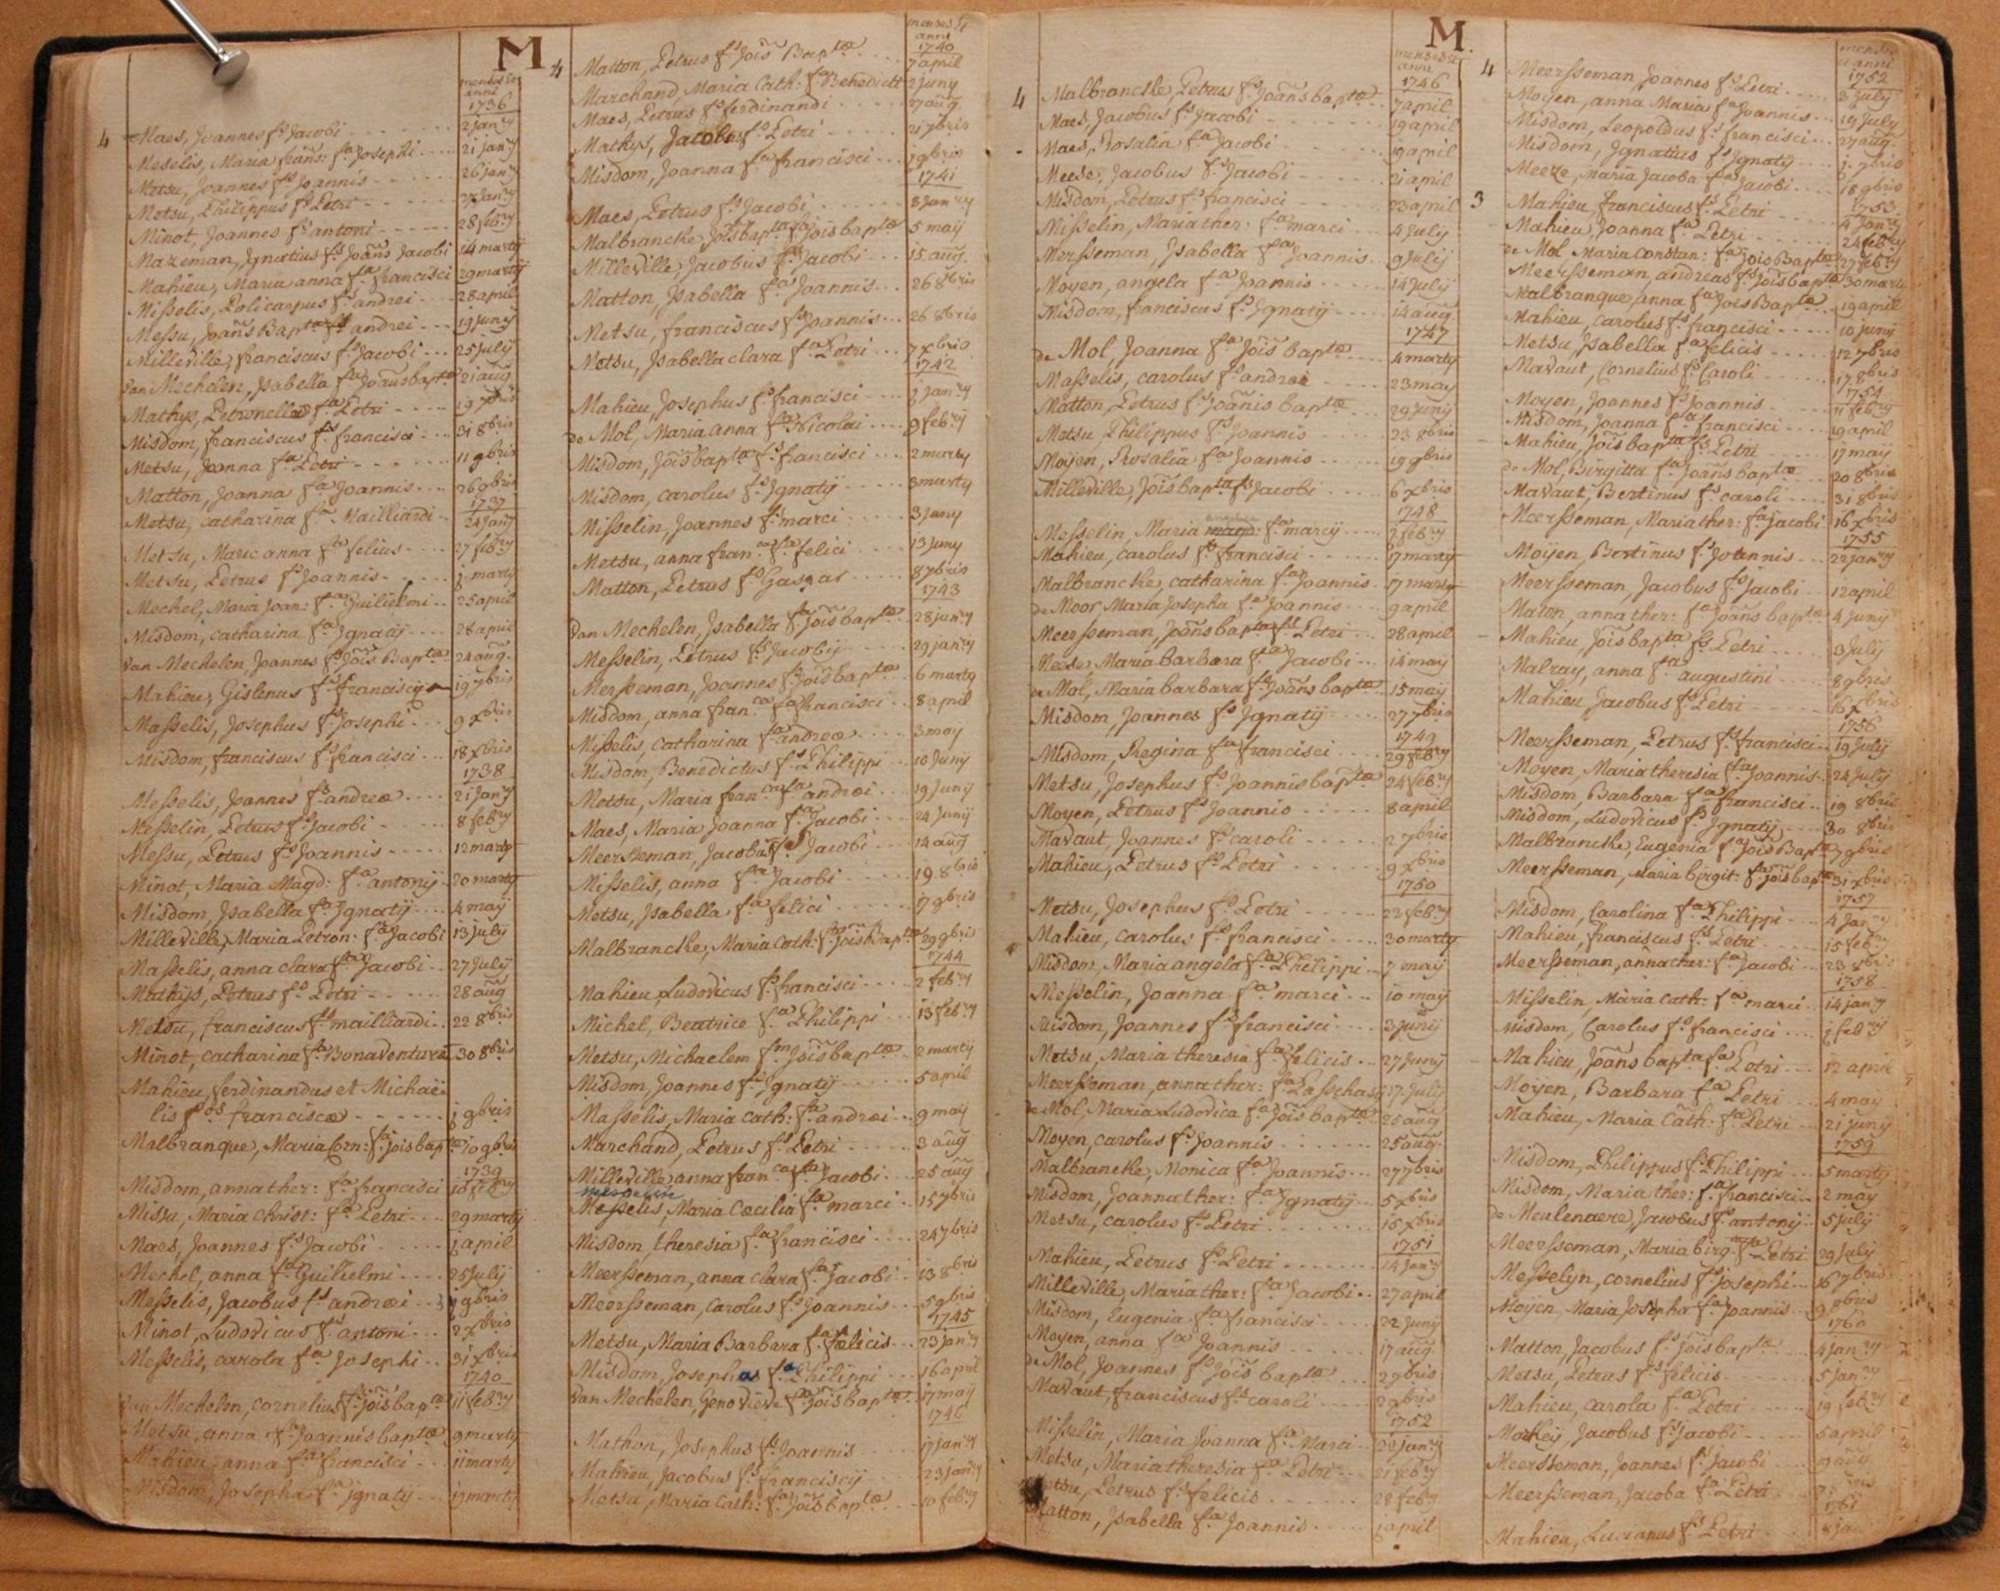 M
menses et
anni
1736
4 Maes, Joannes fs Jacobi 2 jan.ry
Meselis, Maria frans: fa Josephi 21 jan.ry
Metsu, Joannes fs Joannis 26 jan.ry
Metsu, Philippus fs Petri jan.ry
Minot, Joannes fs antoni 28 feb.ry
Mazeman, Ignatius fs Joañs Jacobi 14 martij
Mahieu, Maria anna fa francisci 29 martij
Misselis, Policarpus fs andrei 28 april
Messu, Joañs Baptã fs andrei 19 junij
Milleville, franciscus fs Jacobi 25 july
van Mechelen, Isabella fa Joañs baptæ 21 aug
Mathys, Petronella fa Petri 19 xbris
Misdom, franciscus fs francisci 31 8bris
Metsu, Joanna fa Petri 11 9bris
Matton, Joanna fa Joannis 26 9bris
1737
Metsu, catharina fa Mailliardi 24 jan.ry
Metsu, Marie anna fa felius 27 feb.ry
Metsu, Petrus fs Joannis j marty
Mechel, Maria Joan: fa Guilielmi 25 april
Misdom, catharina fa Ignatij 28 april
van Mechelen, Joannes fs Joïs Baptæ 24 aug.
Mahieu, Gislenus fs francisci 19 7bris
Masselis, Josephus fs Josephi 9 xbris
Misdom, franciscus fs francisci 18 xbris
1738
Messelis, Joannes fs andreæ 21 jan.ry
Messelin, Petrus fs Jacobi 8 feb.ry
Messu, Petrus fs Joannis 12 marty
Minot, Maria Magd: fa antonij 20 marty
Misdom, Isabella fa Ignatij 4 maij
Milleville, Maria Petron: fa Jacobi 13 july
Masselis, anna clara fa Jacobi 27 july
Mathys, Petrus fs Petri 28 aug
Metsu, franciscus fs mailliardi 22 8bris
Minot, catharina fa Bonaventura 30 8bris
Mahieu, ferdinandus et Michaë-
lis fos franciscæ j 9bris
Malbranque, Maria Corn: fa Joisbaptæ 10 9bris
1739
Misdom, anna ther: fa francisci 10 feb.ry
Missu, Maria christ: fa Petri 29 martij
Maes, Joannes fs Jacobi j april
Mechel, anna fa Guilielmi 25 july
Messelis, Jacobus fs andræi j 9bris
Minot, Ludovicus fs antoni 2 xbris
Messelis, carola fa Josephi 31 xbris
1740
van Mechelen, cornelius fs Joïs baptæ 11 feb.ry
Metsu, anna fa Joannis baptæ 9 marty
Mahieu, anna fa francisci 11 marty
Misdom, Josepha fa Ignatij 19 marty
menses et
anni
1740
4 Matton, Petrus fs Joïs Baptæ 7 april
Marchand, Maria Cath: fa Benedicti 2 juny
Maes, Petrus fs ferdinandi 27 aug
Mathys, Jacobus fs Petri 21 7bris
Misdom, Joanna fa francisci j 9bris
1741
Maes, Petrus fs Jacobi 8 jan.ry
Malbrancke, Joïsbapta fs Joïsbaptæ 5 maij
Milleville, Jacobus fs Jacobi 15 aug.
Matton, Isabella fa Joannis 26 8bris
Metsu, franciscus fs Joannis 26 8bris
Metsu, Isabella clara fa Petri 7 xbris
1742
Mahieu, Josephus fs francisci j jan.ry
de Mol, Maria anna fa Nicolai 9 feb.ry
Misdom, Joïsbapta fs francisci 2 marty
Misdom, carolus fs Ignatij 3 marty
Misselin, Joannes fs marci 3 juny
Metsu, anna fran:ca fa felici 13 juny
Matton, Petrus fs Gaspar 8 7bris
1743
van Mechelen, Isabella fa Joïsbaptæ 28 jan.ry
Messelin, Petrus fs Jacobij 29 jan.ry
Mersseman, Joannes fs Joïsbaptæ 6 marty
Misdom, anna fran:ca fa francisci 8 april
Misselis, catharina fa andreæ 3 may
Misdom, Benedictus fs Philippi 10 juny
Metsu, Maria fran:ca fa andræi 19 junij
Maes, Maria Joanna fa Jacobi 24 junij
Meersseman, Jacobus fs Jacobi 14 aug
Misselis, anna fa Jacobi 19 8bris
Metsu, Isabella fa felici 17 9bris
Malbrancke, Maria Cath: fa Joïs Baptæ 29 9bris
1744
Mahieu, Ludovicus fs francisci 2 feb.ry
Michel, Beatrice fa Philippi 13 feb.ry
Metsu, Michaelem fm Joïsbaptæ 2 marty
Misdom, Joannes fs Ignatij 5 april
Masselis, Maria cath: fa andræi 9 maij
Marchand, Petrus fs Petri 3 aug
Milleville, anna fran:ca fa Jacobi 25 aug
Messelis, Maria Cæcilia fa marci 15 7bris
Misdom, theresia fa francisci 24 7bris
Meersseman, anna clara fa Jacobi 13 8bris
Meersseman, carolus fs Joannis 5 9bris
1745
Metsu, Maria Barbara fa felicis 23 jan.ry
Misdom, Josephus fs Philippi 16 april
van Mechelen, Genovieve fa Joïsbaptæ 17 maij
1746
Mathon, Josephus fs Joannis 17 jan.ry
Mahieu, Jacobus fs franciscij 23 jan.ry
Metsu, Maria Cath: fa Joïsbaptæ 10 feb.ry
M.
menses et
anni
1746
4 Malbrancke, Petrus fs Joañs baptæ 7 april
Maes, Jacobus fs Jacobi 19 april
Maes, Rosalia fa Jacobi 19 april
Meese, Jacobus fs Jacobi 21 april
Misdom, Petrus fs francisci 23 april
Misselin, Maria ther: fa marci 4 july
Mersseman, Isabella fa Joannis 9 july
Moyen, angela fa Joannis 14 july
Misdom, franciscus fs Ignatij 14 aug
1747
de Mol, Joanna fa Joïs baptæ 4 marty
Masselis, carolus fs andrei 23 may
Matton, Petrus fs Joannis baptæ 29 junij
Metsu, Philippus fs Joannis 23 8bris
Moyen, Rosalia fa Joannis 19 9bris
Milleville, Joïsbapta fs Jacobi 6 xbris
1748
Messelin, Maria fa marcij 2 feb.ry
Mahieu, carolus fs francisci 17 marty
Malbrancke, catharina fa Joannis 17 marty
de Moor, Maria Josepha fa Joannis 9 april
Meersseman, Joañs bapta fs Petri 28 april
Meese, Maria barbara fa Jacobi 14 may
de Mol, Maria barbara fa Joañs baptæ 15 may
Misdom, Joannes fs Ignatij 27 7bris
1749
Misdom, Regina fa francisci 29 feb.ry
Metsu, Josephus fs Joannis baptæ 24 feb.ry
Moyen, Petrus fs Joannis 8 april
Mavaut, Joannes fs caroli 2 7bris
Mahieu, Petrus fs Petri 9 xbris
1750
Metsu, Josephus fs Petri 22 feb.ry
Mahieu, carolus fs francisci 30 marty
Misdom, Maria angela fa Philippi 7 maij
Messelin, Joanna fa marci 10 maij
Misdom, Joannes fs francisci 3 junij
Metsu, Maria theresia fa felicis 27 junij
Meersseman, anna ther: fa Passchasij 17 july
de Mol, Maria Ludovica fa Joïs baptæ 20 aug
Moyen, carolus fs Joannis 25 aug.
Malbrancke, Monica fa Joannis 27 7bris
Misdom, Joanna ther: fa Ignatij 5 xbris
Metsu, carolus fs Petri 16 xbris
1751
Mahieu, Petrus fs Petri 14 jan.ry
Milleville, Maria ther: fa Jacobi 27 april
Misdom, Eugenia fa francisci 22 juny
Moyen, anna fa Joannis 17 aug.
de Mol, Joannes fs Joïs baptæ 2 9bris
Mavaut, franciscus fs caroli 2 9bris
1752
Misselin, Maria Joanna fa Marci 20 jan.ry
Metsu, Maria theresia fa Petri 21 feb.ry
Metsu, Petrus fs felicis 28 feb.y
Matton, Isabella fa Joannis j april
menses
et anni
1752
4 Meersseman, Joannes fs Petri 2 july
Moyen, anna Maria fa Joannis 19 july
Misdom, Leopoldus fs francisci 27 aug
Misdom, Ignatius fs Ignatij j 7bris
Meeze, Maria Jacoba fa Jacobi 18 9bris
1753
3 Mahieu, franciscus fs Petri 4 jan.ry
Mahieu, Joanna fa Petri 24 feb.ry
de Mol, Maria Constan: fa Joïs Baptæ 27 feb.ry
Meersseman, andreas fs Joïsbaptæ 30 marti
Malbranque, anna fa Joïs Baptæ 19 april
Mahieu, carolus fs francisci 10 junij
Metsu, Isabella fa felicis 12 7bris
Mavaut, Cornelius fs Caroli 17 8bris
1754
Moyen, Joannes fs Joannis 11 feb.ry
Misdom, Joanna fa francisci 19 april
Mahieu, Joïs bapta fs Petri 17 may
de Mol, Birgitta fa Joañs baptæ 20 8bris
Mavaut, Bertinus fs caroli 31 8bris
Meersseman, Maria ther: fa Jacobi 16 xbris
1755
Moyen, Bertinus fs Joannis 22 jan.ry
Meersseman, Jacobus fs Jacobi 12 april
Maton, anna ther: fa Joañs baptæ 4 juny
Mahieu, Joïs bapta fs Petri 3 july
Malray, anna fa augustini 8 9bris
Mahieu, Jacobus fs Petri 16 xbris
1756
Meersseman, Petrus fs francisci 19 july
Moyen, Maria theresia fa Joannis 24 july
Misdom, Barbara fa francisci 19 8bris
Misdom, Ludovicus fs Ignatij 30 8bris
Malbrancke, Eugenia fa Joïs Baptæ 9bris
Meersseman, Maria birgit: fa Joïsbaptæ 31 xbris
1757
Misdom, Carolina fa Philippi 4 jan.ry
Mahieu, franciscus fs Petri 15 feb.ry
Meersseman, anna ther: fa Jacobi 23
1758
Misselin, Maria Cath: fa marci 14 jan.ry
Misdom, Carolus fs francisci j feb.ry
Mahieu, Joañs bapta fs Petri 12 april
Moyen, Barbara fa Petri 4 may
Mahieu, Maria Cath: fa Petri 21 juny
1759
Misdom, Philippus fs Philippi 5 marty
Misdom, Maria ther: fa francisci 2 may
de Meulenaere, Jacobus fs antonij 5 july
Meersseman, Maria birg: fa Petri 29 july
Messelyn, cornelius fs Josephi 16 7bris
Moyen, Maria Josepha fa Joannis 9bris
1760
Matton, Jacobus fs Joïs baptæ 4 jan.ry
Metsu, Petrus fs felicis 5 jan.ry
Mahieu, carola fa Petri 19 feb.ry
Jacobus fs Jacobi 6 april
Meersseman, Joannes fs Jacobi aug
Meersseman, Jacoba fa Petri
1761
Mahieu, Lucianus fs Petri 8 ja